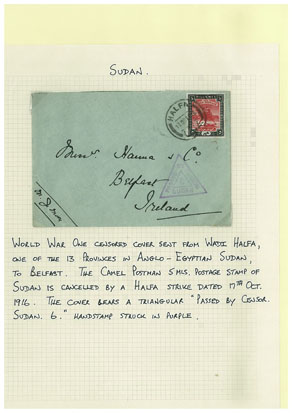 SUDAN.
HALFA
Messrs Hanna & Co.
Belfast
Ireland
WORLD WAR ONE CENSORED COVER SENT FROM WADI HALFA,
ONE OF THE 13 PROVINCES IN ANGLO-EGYPTIAN SUDAN,
TO BELFAST. THE CAMEL POSTMAN 5 MILS. POSTAGE STAMP OF
SUDAN IS CANCELLED BY A HALFA STRIKE DATED 17TH OCT.
1916. THE COVER BEARS A TRIANGULAR "PASSED BY CENSOR.
SUDAN. 6." HANDSTAMP STRUCK IN PURPLE.